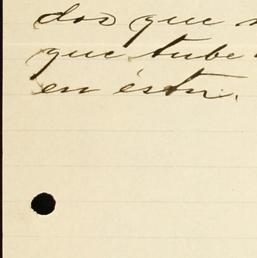 dos que
que tube
en ésta.